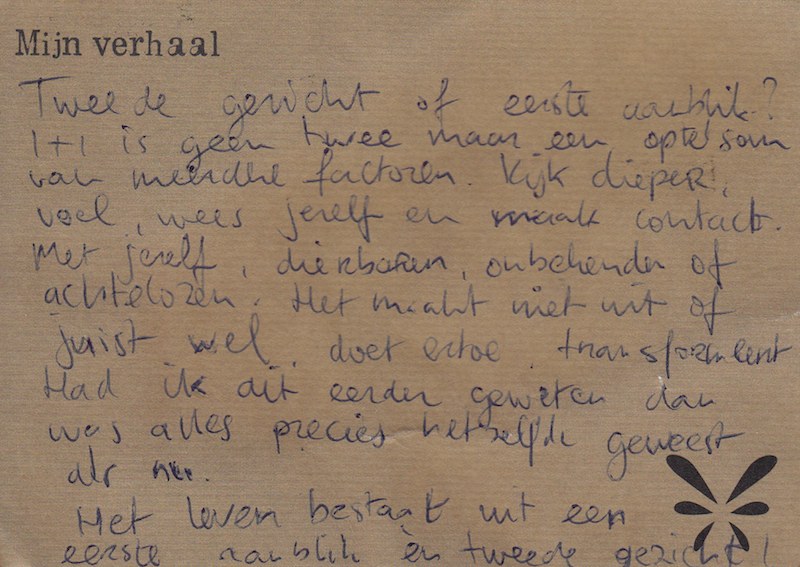 Mijn verhaal
Tweede gezicht of eerste aanblik?
1+1 is geen twee maar een optelsom
van meerdere factoren. Kijk dieper,
voel, wees jezelf en maak contact.
Met jezelf, dierbaren, onbekenden of
achtelozen. Het maakt niet uit of
juist wel, doet ertoe, transformeert
Had ik dit eerder geweten dan
was alles precies hetzelfde geweest
als nu.
Het leven bestaat uit een
eerste aanblik èn tweede gezicht!